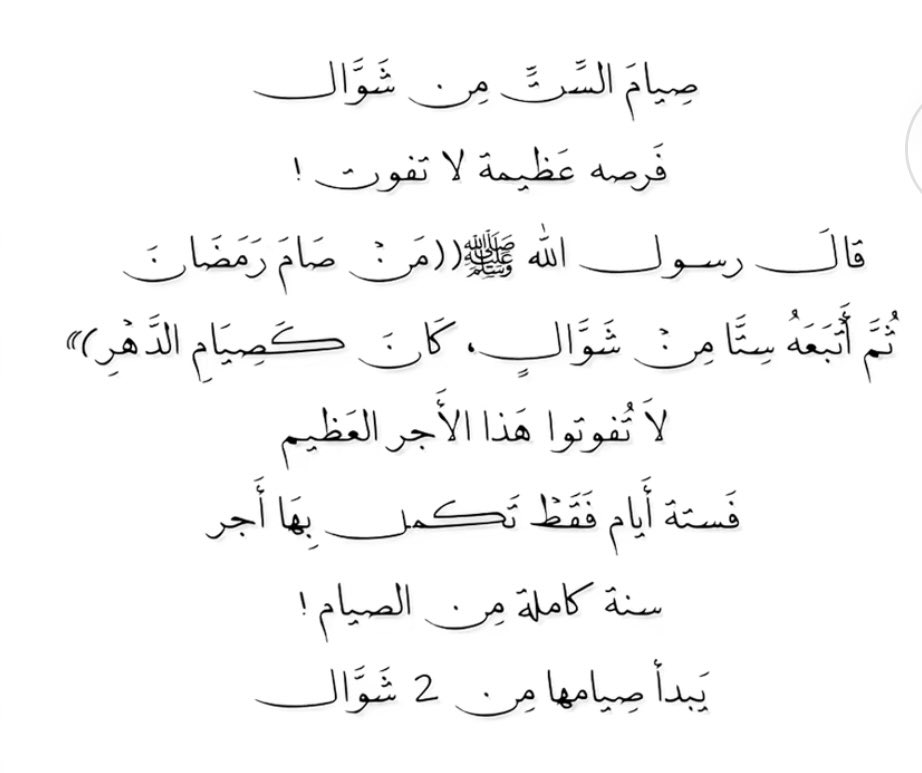 صِيامَ السَّتَّ مِن شَوَّال
فَرصه عَظيمة لا تفوت !
قالَ رسول الله ﷺ((مَنْ صَامَ رَمَضَانَ
ثُمَّ أَتْبَعَهُ سِتًّا مِنْ شَوَّالٍ، كَانَ كَصِيَامِ الدَّهْرِ)))
لاَ تُفوتوا هَذا الأَجر العَظيم
فَستة أَيام فَقَطْ تَكمل بِهَا أَجر
سنة كاملة مِن الصيام !
يَبدأ صِيامها مِن 2 شَوَّال